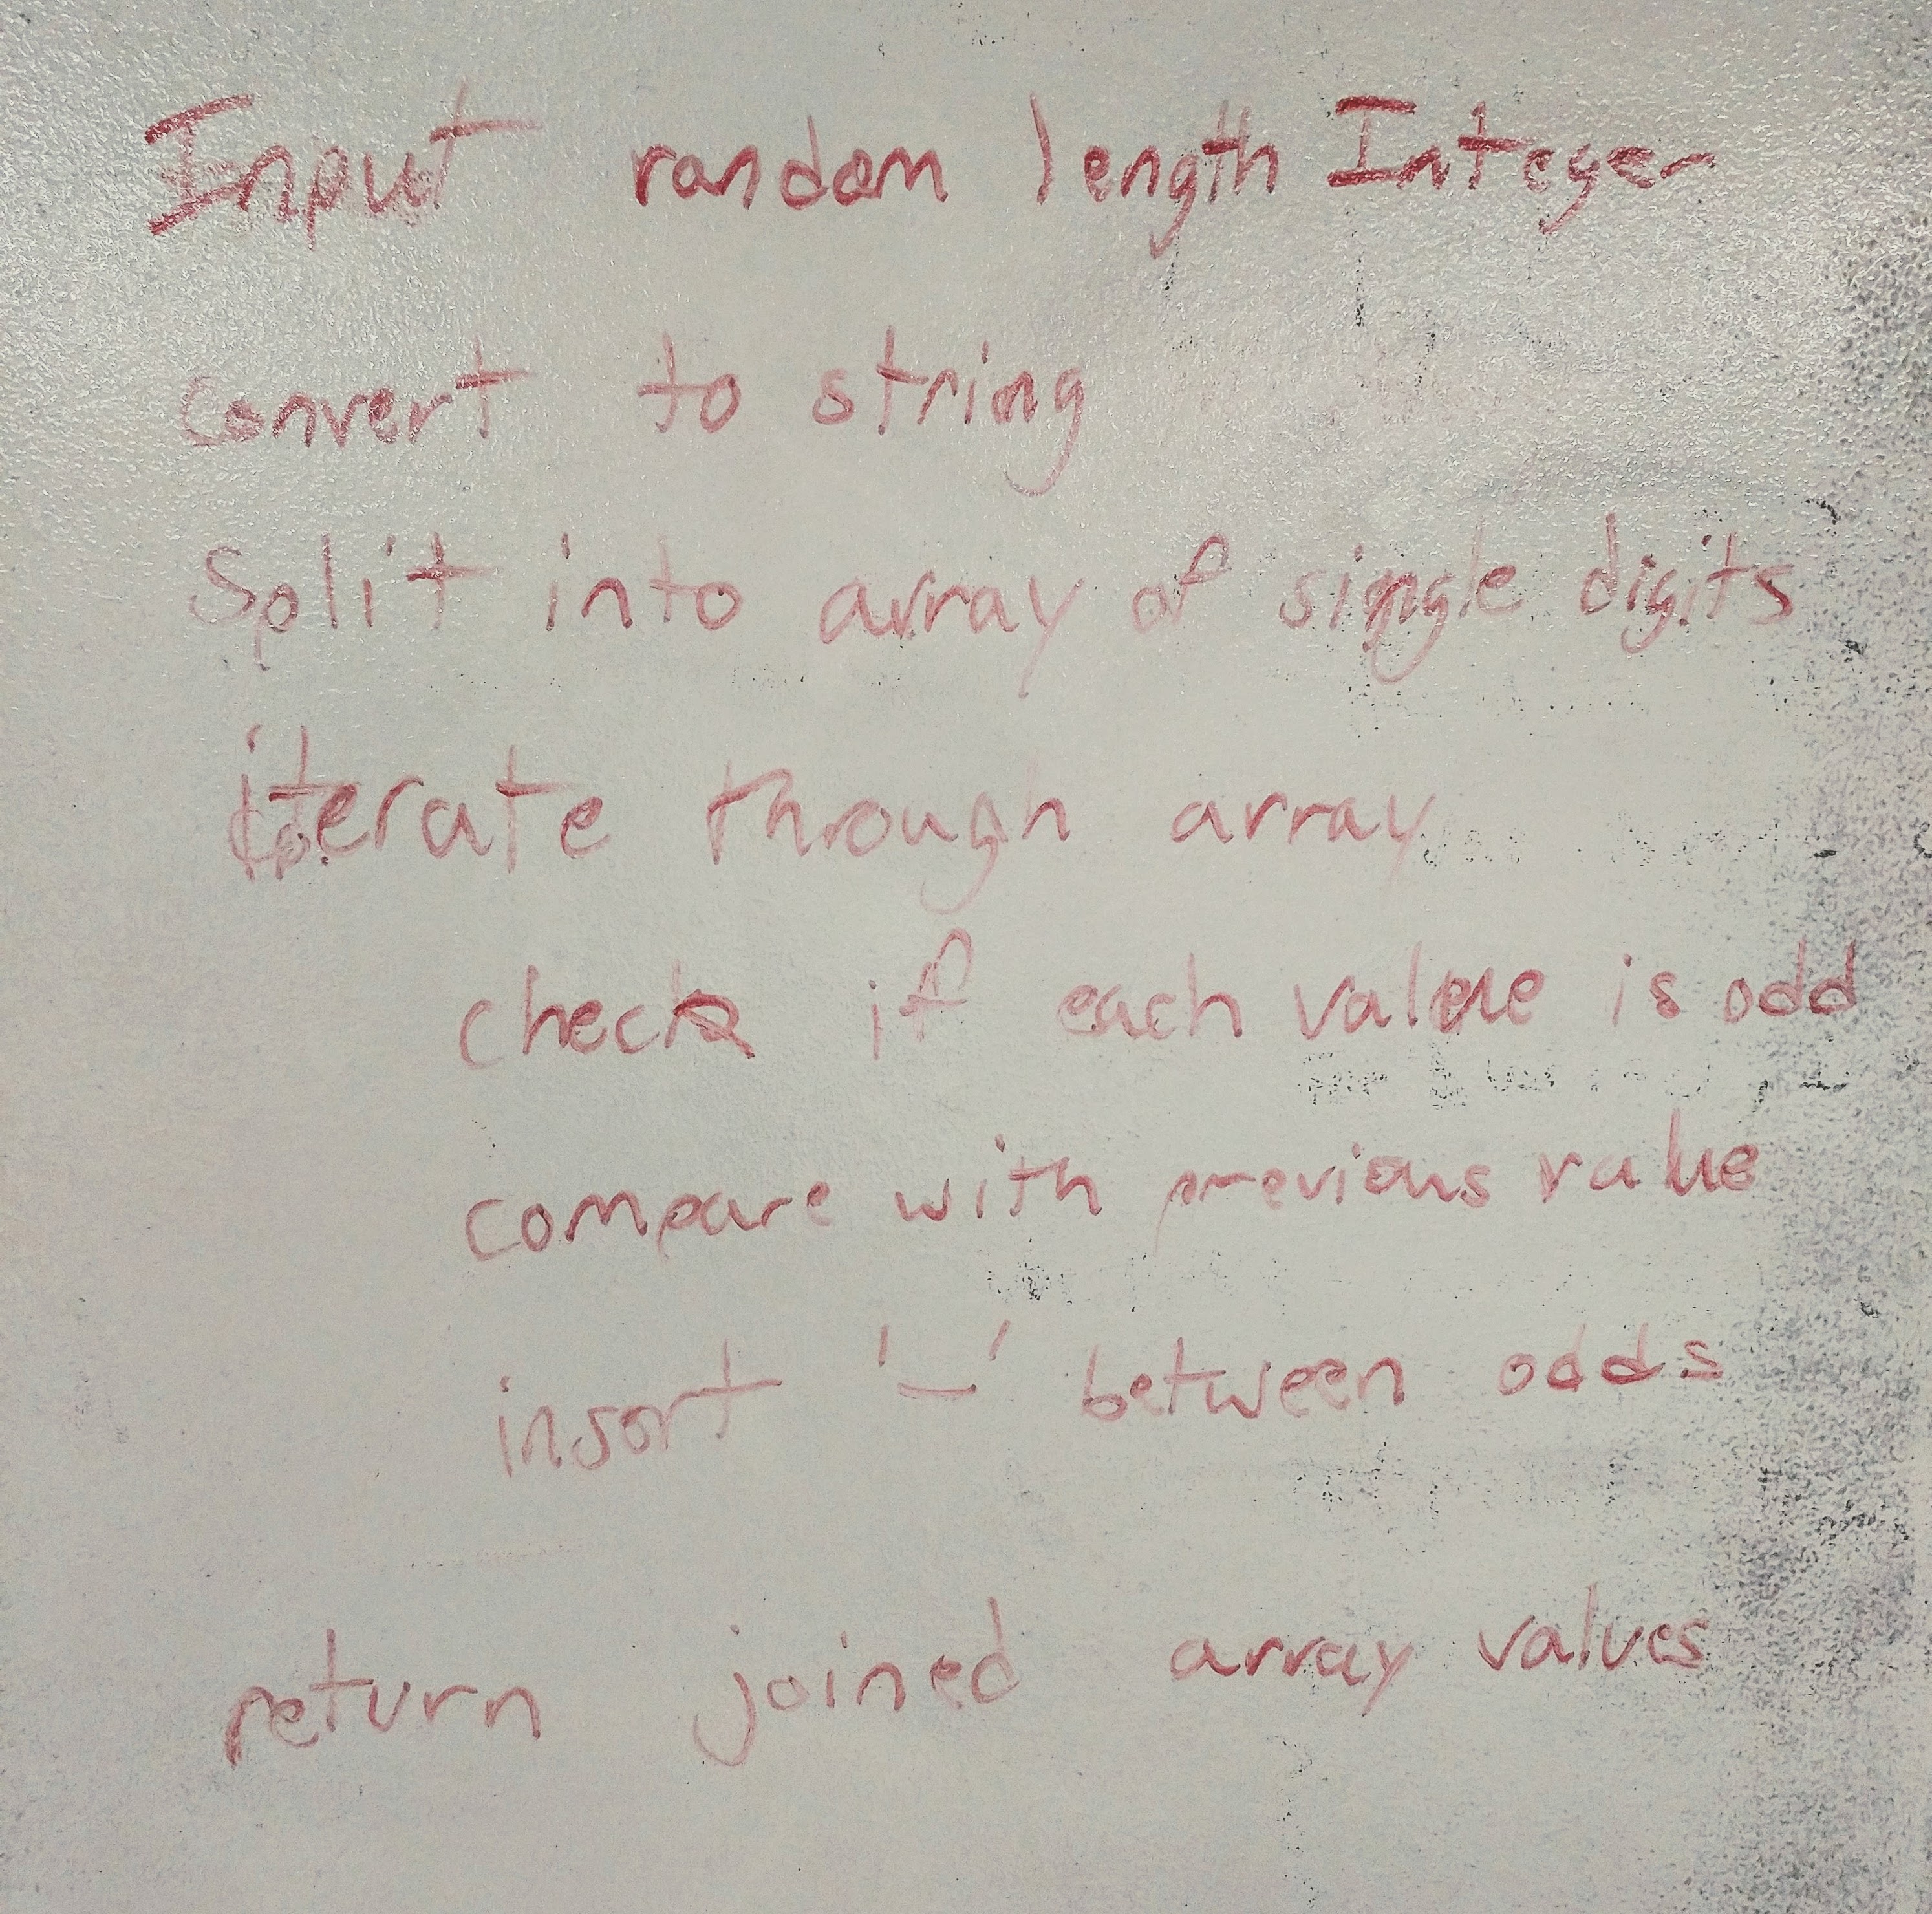 Input random length Integer
convert to string
Split into array of single digits
iterate through array
check if each value is odd
compare with previous value
insort '-' between odds
return joined array values